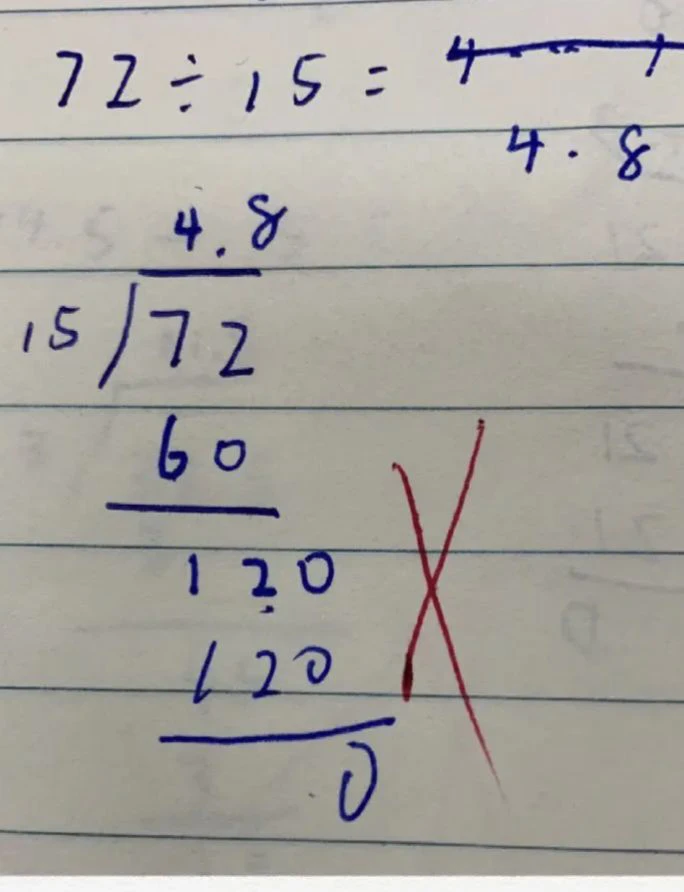 72÷15=
4.8
4.8
15)72
60
120
120
0